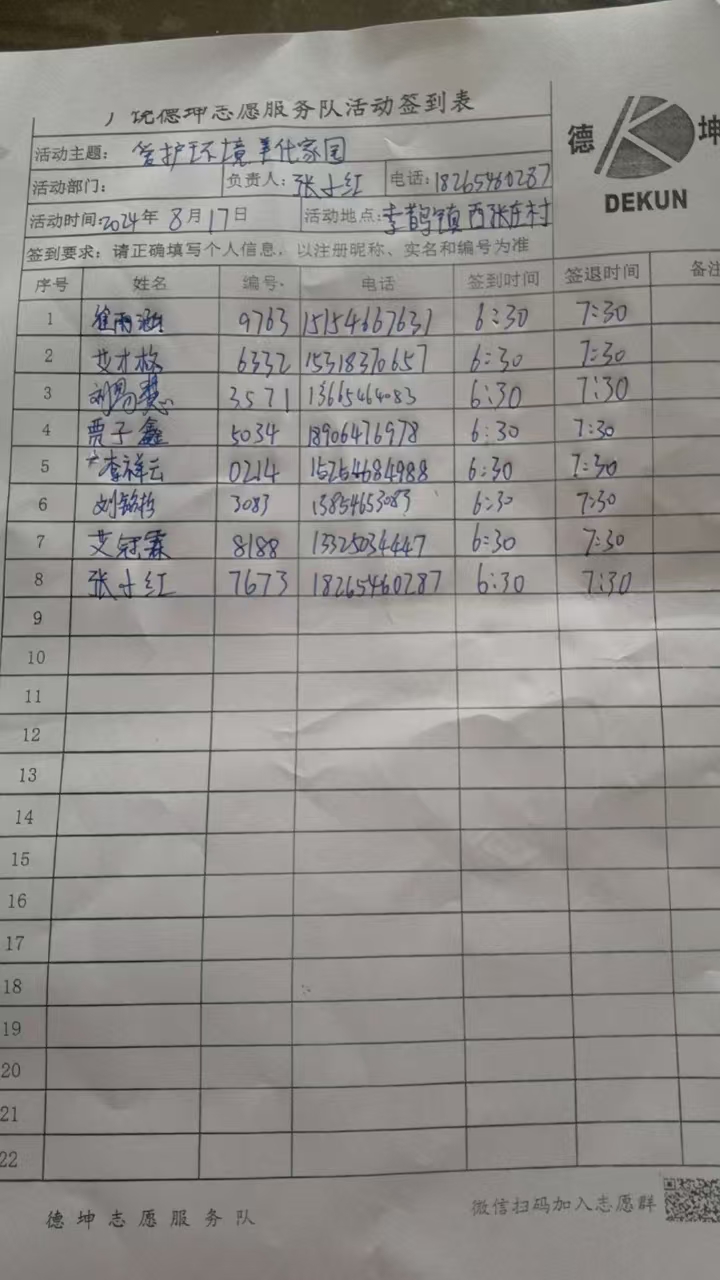 饶德坤志愿服务队活动签到表
德 坤
DEKUN
活动主题: 管护环境美化家园
活动部门: 负责人: 张小红 电话: 18265460287
活动时间: 2024年 8月17日 活动地点: 李鹊镇西张庄村
签到要求: 请正确填写个人信息, 以注册昵称、实名和编号为准
序号 姓名 编号. 电话 签到时间 签退时间 备注
1 徐雨涵 9763 15154667631 6:30 7:30
2 艾才栋 6332 15318370657 6:30 7:30
3 刘 3571 13665464083 6:30 7:30
4 贾子鑫 5034 18906476978 6:30 7:30
5 李祥云 0214 15254684988 6:30 7:30
6 刘铭哲 3083 13854653083 6:30 7:30
7 艾冠霖 8188 13325034447 6:30 7:30
8 张小红 7673 18265460287 6:30 7:30
9
10
11
12
13
14
15
16
17
18
19
20
21
22
德坤志愿服务队 微信扫码加入志愿群